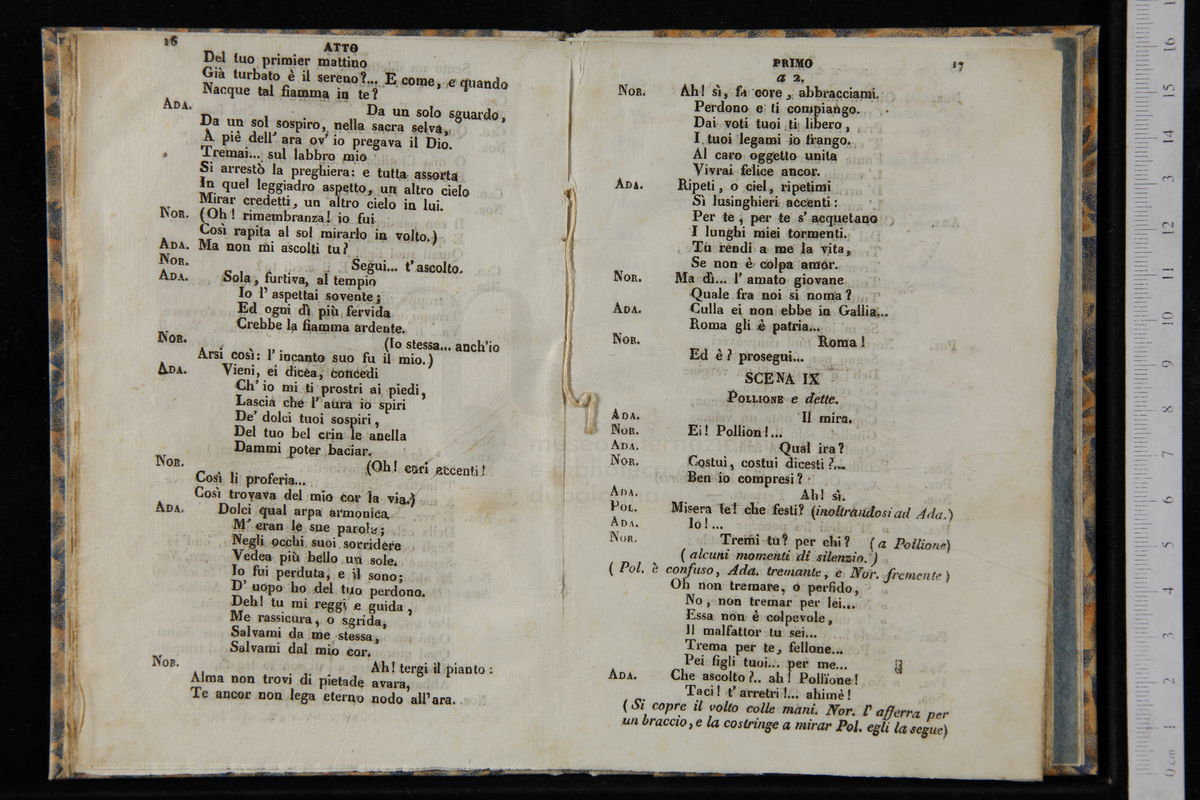 16
ATTO
Del tuo primier mattino
Già turbato è il sereno?... E come, e quando
Nacque tal fiamma in te?
ADA. Da un solo sguardo,
Da un sol sospiro, nella sacra selva,
A piè dell' ara ov' io pregava il Dio.
Tremai... sul labbro mio
Si arrestò la preghiera: e tutta assorta
In quel leggiadro aspetto, un altro cielo
Mirar credetti, un altro cielo in lui.
NOR. (Oh! rimembranza! io fui
Così rapita al sol mirarlo in volto.)
ADA. Ma non mi ascolti tu?
NOR. Segui... t'ascolto.
ADA. Sola, furtiva, al tempio
Io l' aspettai sovente;
Ed ogni dì più fervida
Crebbe la fiamma ardente.
NOR. (Io stessa... anch'io
Arsi così: l' incanto suo fu il mio.)
ADA. Vieni, ei dicea, concedi
Ch' io mi ti prostri ai piedi,
Lascia che l' aura io spiri
De' dolci tuoi sospiri,
Del tuo bel crin le anella
Dammi poter baciar.
NOR. (Oh! cari accenti!
Così li proferia...
Così trovava del mio cor la via.)
ADA. Dolci qual arpa armonica
M' eran le sue parole;
Negli occhi suoi sorridere
Vedea più bello un sole.
Io fui perduta, e il sono;
D' uopo ho del tuo perdono.
Deh! tu mi reggi e guida,
Me rassicura, o sgrida,
Salvami da me stessa,
Salvami dal mio cor.
NOR. Ah! tergi il pianto:
Alma non trovi di pietade avara,
Te ancor non lega eterno nodo all'ara.
PRIMO
17
a 2.
NOR. Ah! sì, fa core, abbracciami.
Perdono e ti compiango.
Dai voti tuoi ti libero,
I tuoi legami io frango.
Al caro oggetto unita
Vivrai felice ancor.
ADA. Ripeti, o ciel, ripetimi
Sì lusinghieri accenti:
Per te, per te s' acquetano
I lunghi miei tormenti.
Tu rendi a me la vita,
Se non è colpa amor.
NOR. Ma dì... l' amato giovane
Quale fra noi si noma?
ADA. Culla ei non ebbe in Gallia...
Roma gli è patria...
NOR. Roma!
Ed è? prosegui...
SCENA IX
POLLIONE e dette.
ADA. Il mira.
NOR. Ei! Pollion!...
ADA. Qual ira?
NOR. Costui, costui dicesti?...
Ben io compresi?
ADA. Ah! sì.
POL. Misera te! che festi? (inoltrandosi ad Ada.)
ADA. Io!...
NOR. Tremi tu? per chi? (a Pollione)
(alcuni momenti di silenzio.)
(Pol. è confuso, Ada. tremante, e Nor. fremente)
Oh non tremare, o perfido,
No, non tremar per lei...
Essa non è colpevole,
Il malfattor tu sei...
Trema per te, fellone...
Pei figli tuoi... per me...
ADA. Che ascolto?.. ah! Pollione!
Taci! t' arretri!... ahimè!
(Si copre il volto colle mani. Nor. l' afferra per
un braccio, e la costringe a mirar Pol. egli la segue)